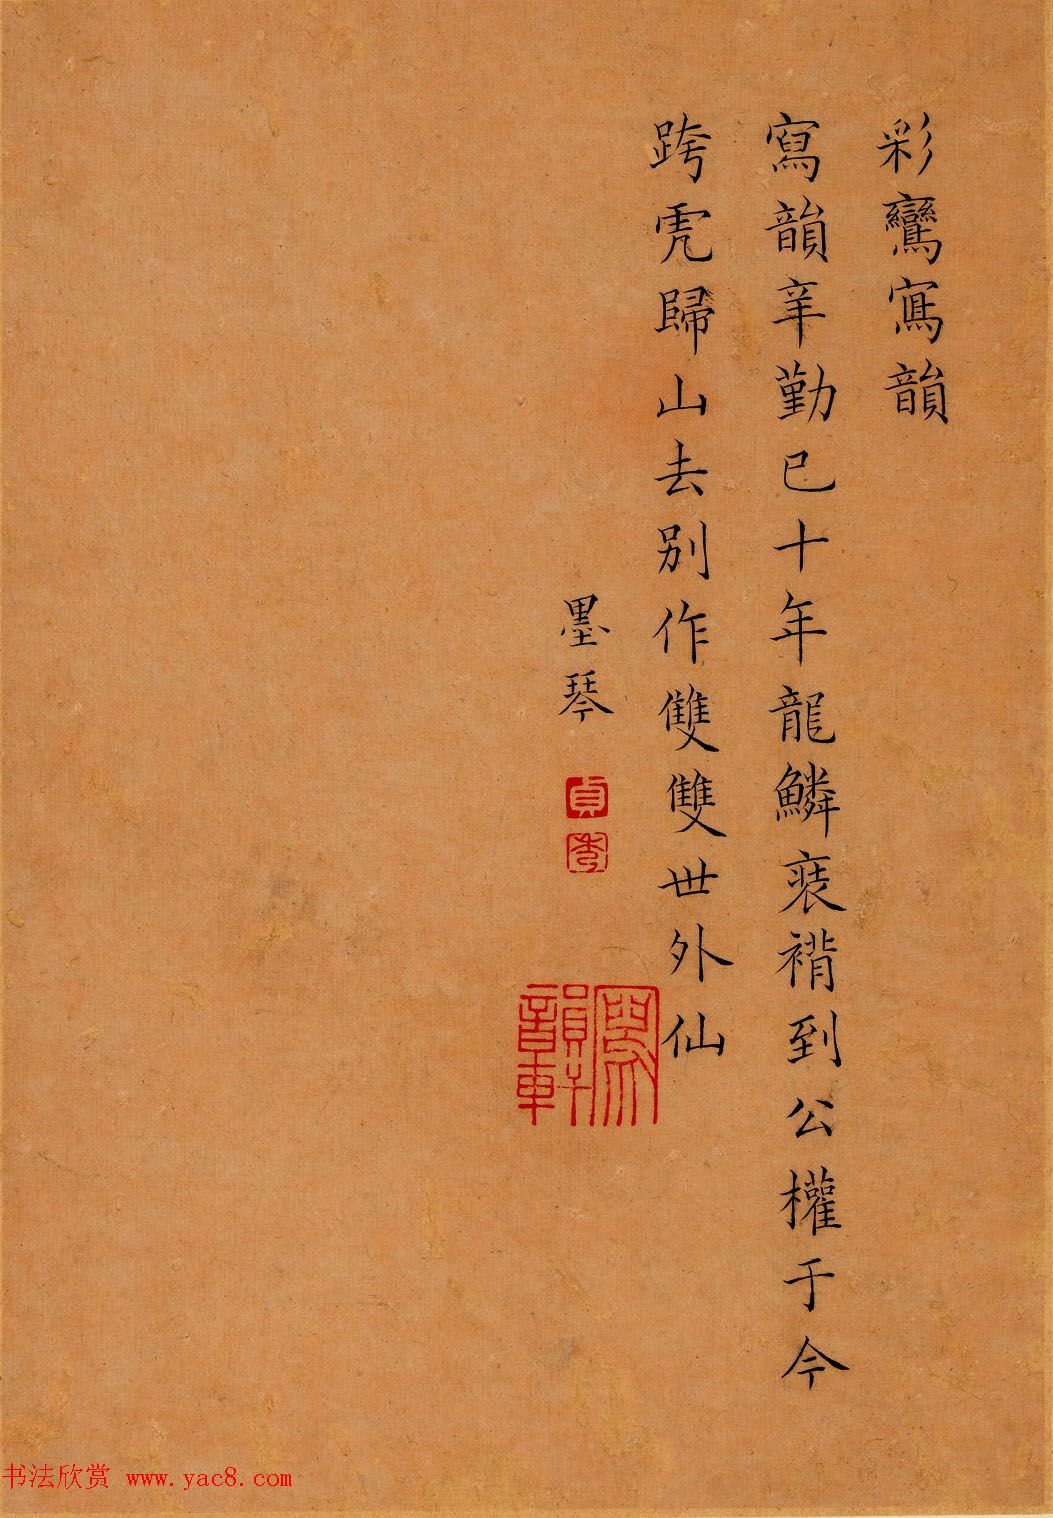 彩鸞寫韻
寫韻辛勤已十年龍鱗裘褙到公權于今
跨虎歸山去別作雙雙世外仙
墨琴
貞
秀
寫韻軒
書法欣赏 www.yac8.com